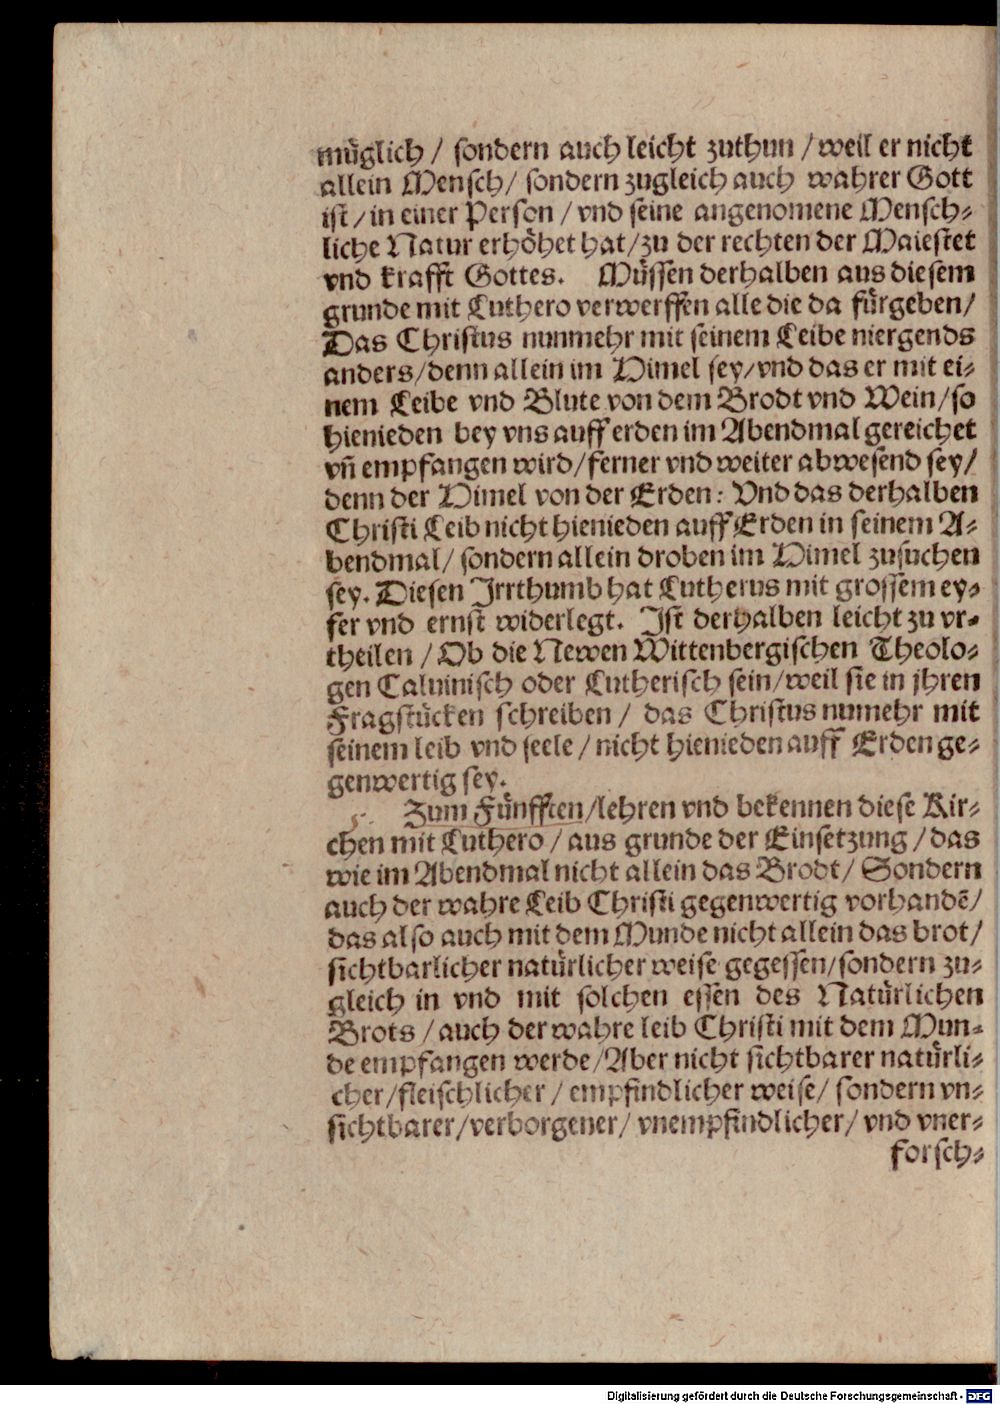 müglich / sondern auch leicht zuthun / weil er nicht
allein Mensch / sondern zugleich auch wahrer Gott
ist / in einer Person / vnd seine angenomene Mensch-
liche Natur erhöhet hat / zu der rechten der Maiestet
vnd krafft Gottes. Müssen derhalben aus diesem
grunde mit Luthero verwerffen alle die da fürgeben /
Das Christus nunmehr mit seinem Leibe niergends
anders / denn allein im Himel sey / vnd das er mit ei-
nem Leibe vnd Blute von dem Brodt vnd Wein / so
hienieden bey vns auff erden im Abendmal gereichet
vñ empfangen wird / ferner vnd weiter abwesend sey /
denn der Himel von der Erden: Vnd das derhalben
Christi Leib nicht hienieden auff Erden in seinem A-
bendmal / sondern allein droben im Himel zusuchen
sey. Diesen Irrthumb hat Lutherus mit grossem ey-
fer vnd ernst widerlegt. Ist derhalben leicht zu vr-
theilen / Ob die Newen Wittenbergischen Theolo-
gen Caluinisch oder Lutherisch sein / weil sie in jhren
Fragstücken schreiben / das Christus numehr mit
seinem leib vnd seele / nicht hienieden auff Erden ge-
genwertig sey.
Zum Fünfften / lehren vnd bekennen diese Kir-
chen mit Luthero / aus grunde der Einsetzung / das
wie im Abendmal nicht allein das Brodt / Sondern
auch der wahre Leib Christi gegenwertig vorhandẽ /
das also auch mit dem Munde nicht allein das brot /
sichtbarlicher natürlicher weise gegessen / sondern zu-
gleich in vnd mit solchen essen des Natürlichen
Brots / auch der wahre leib Christi mit dem Mun-
de empfangen werde / Aber nicht sichtbarer natürli-
cher / fleischlicher / empfindlicher weise / sondern vn-
sichtbarer / verborgener / vnempfindlicher / vnd vner-
forsch-
Digitalisierung gefördert durch die Deutsche Forschungsgemeinschaft - DFG